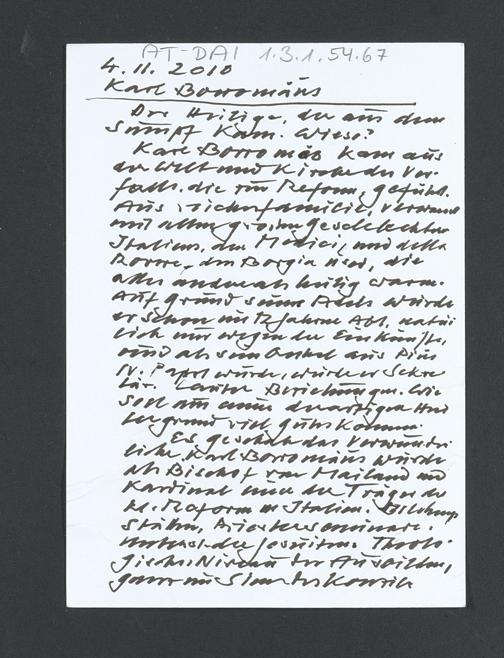 AT-DAI 1.3.1.54.67
4.11.2010
Karl Borromäus
Der Heilige, der aus dem
Sumpf kam. Wieso?
Karl Borromäus kam aus
der Welt und Kirche des Ver-
falls, die zur Reform, geführt.
Aus Familie, verwandt
mit allen großen Geschlechtern
Italiens, den Medici, und della
Rovere, den Borgia usw, die
alles andere als heilig waren.
Auf Grund seines Adels wurde
er schon mit 12 Jahren Abt, natür
lich nur wegen der Einkünfte,
und als sein Onkel aus Pius
IV. Papst wurde, wurde er Sekre
tär. Lauter Beziehungen. Wie
soll aus einem derartigen Hin
tergrund viel Gutes kommen.
Es geschah das Verwunder
liche, Karl Borromäus wurde
als Bischof von Mailand und
Kardinal einer der Träger der
kl. Reform in Italien. Bildungs
stätten, Priesterseminare.
der Jesuiten. Theolo-
gisches Niveau der Ausbildung,
ganz im Sinne des Konzils